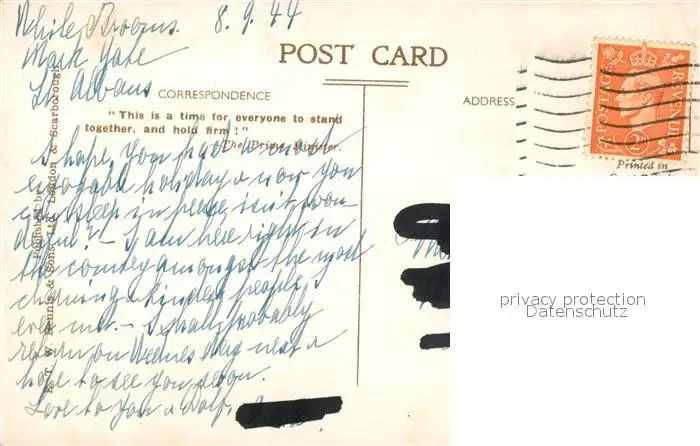 While Brooms. 8.9.44
Mark Yate
St Albans
POST CARD
CORRESPONDENCE
ADDRESS
"This is a time for everyone to stand
together, and hold firm!"
The Prime Minister.
I hope you had a most
enjoyable holiday & now you
can sleep in peace, isn't won-
derful? - I am here right in
the country amongst the most
charming & kindest people, I
ever met. - I shall probably
return on Wednesday next &
hope to see you soon.
Love to you &
Published by
E. T. W. Dennis & Sons, Ltd. London & Scarborough
POSTAGE
REVENUE
2D
Printed in
privacy protection
Datenschutz